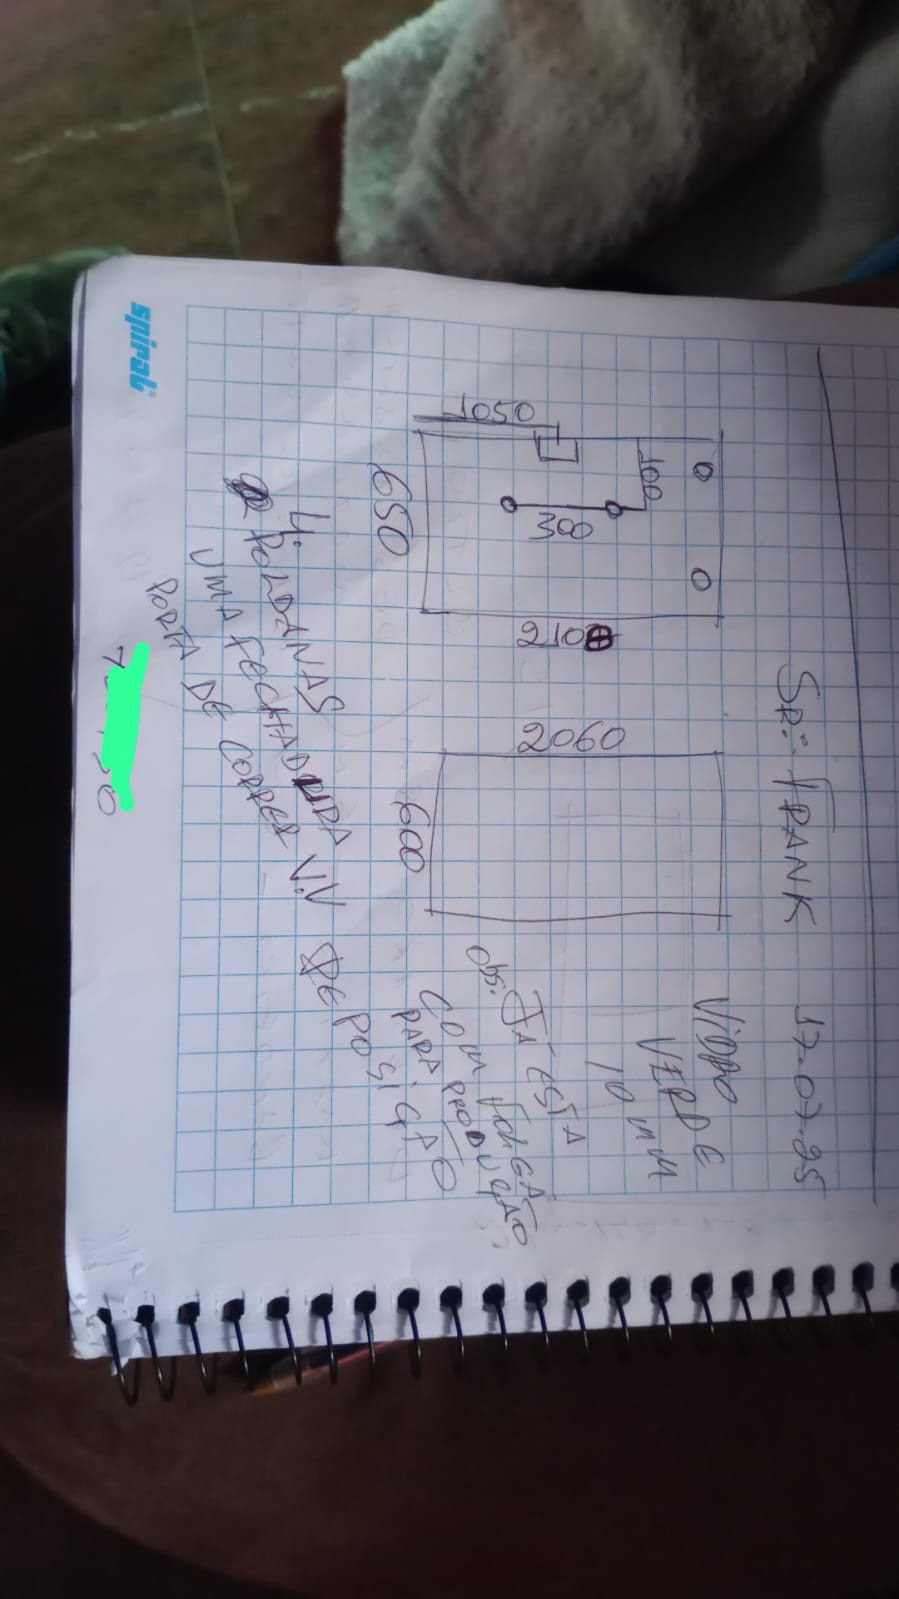 SR: FRANK 17-07-25
VIDRO
VERDE
10 mm
100
300
1050
2100
650
2060
600
Obs: JÁ ESTÁ
COM FOLGA
PARA
4.
POLDANAS
UMA FECHADURA V.V
PORTA DE CORRER
spiral